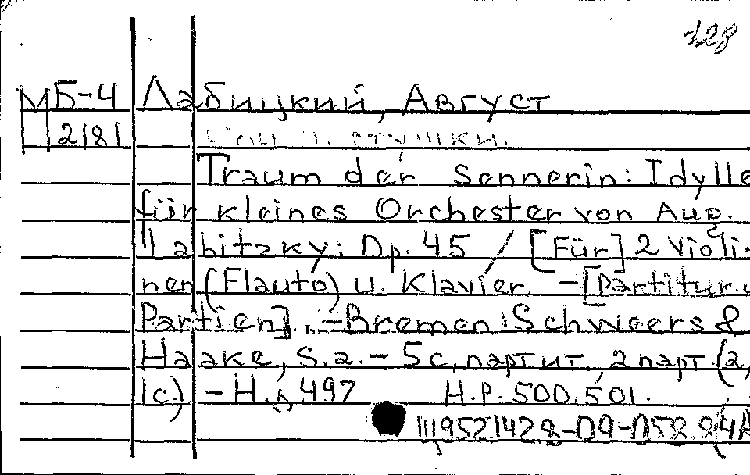 128
МБ-4 Лабицкий, Август
2181 Сон пастушки.
Traum der Sennerin: Idylle
für kleines Orchester von Aug.
Labitzky: Op. 45 / [Für] 2 Violi-
nen (Flauto) u. Klavier. - [Partitur u
Partien]. - Bremen: Schweers &
Haake, s.a. - 5 с. партит, 2 парт. (2,
1с) - Н.д. 497 Н.Р. 500.501.